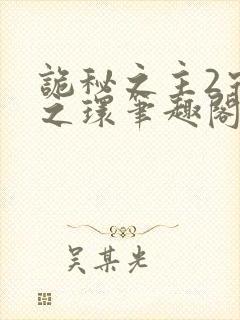 詭秘之主2
之環筆趣閣
吴某光